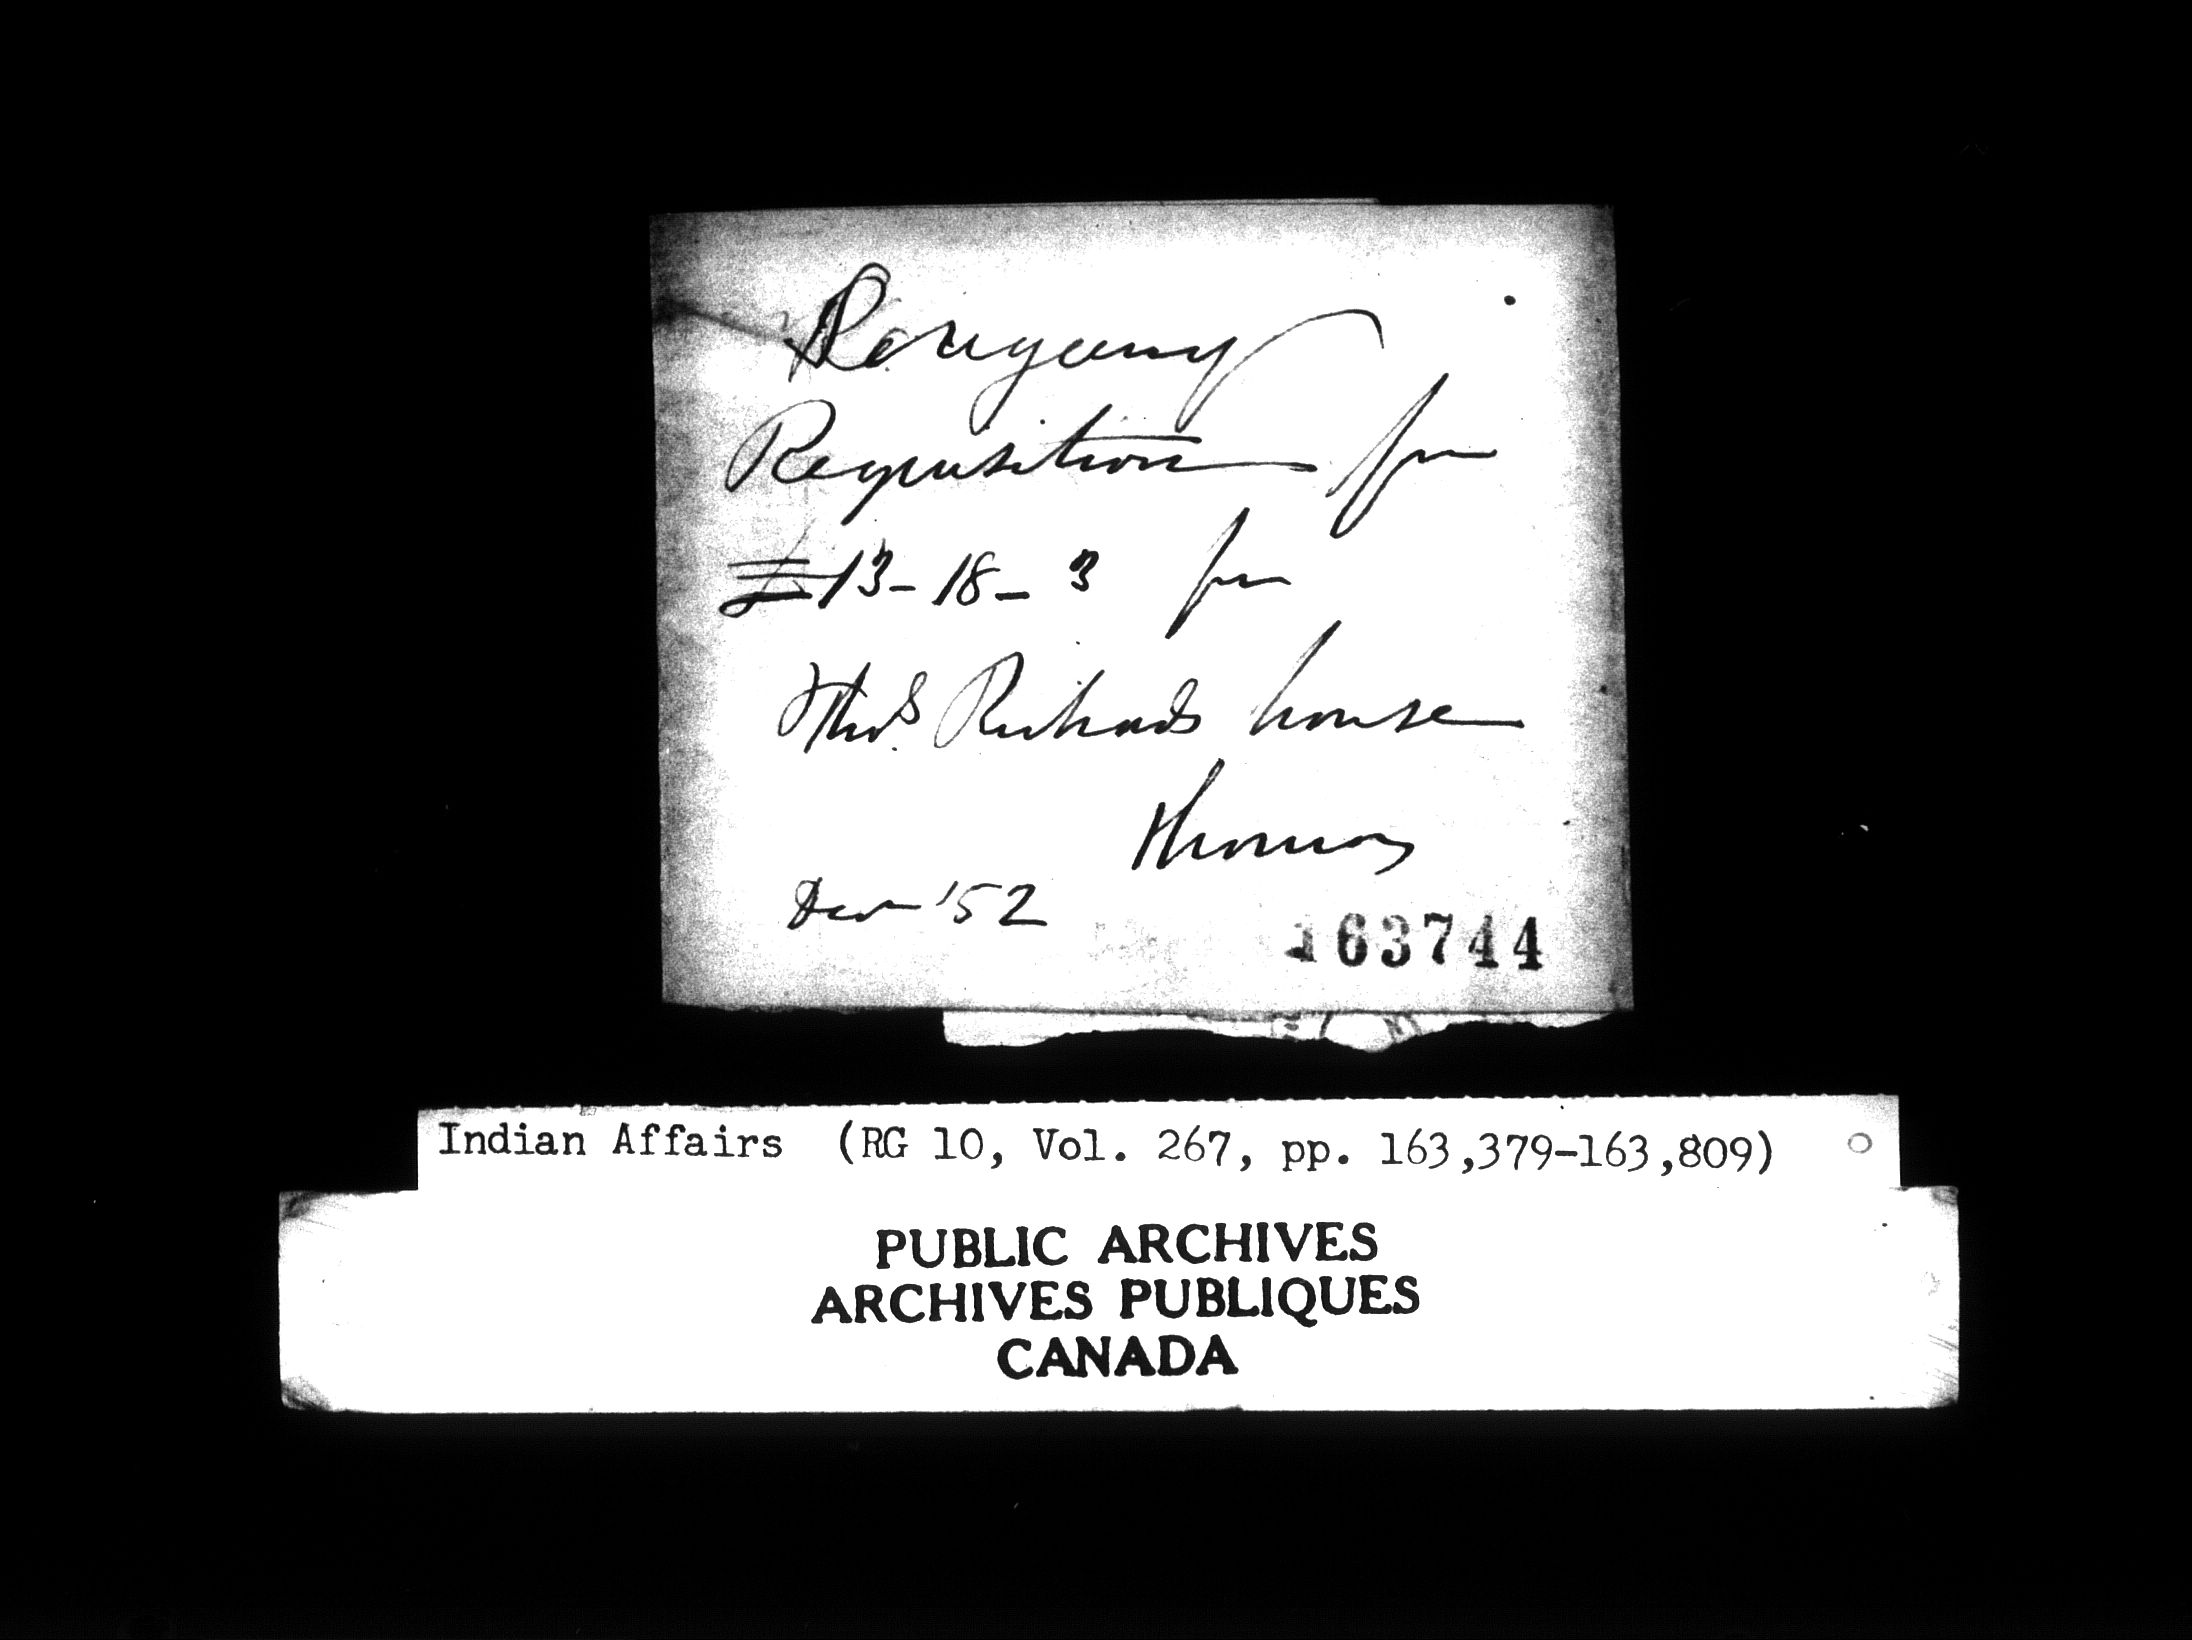 Requisition for
£13-18-3 for
Thos. Richards house
Dec '52
163744
Indian Affairs (RG 10, Vol. 267, pp. 163,379-163,809)
PUBLIC ARCHIVES
ARCHIVES PUBLIQUES
CANADA